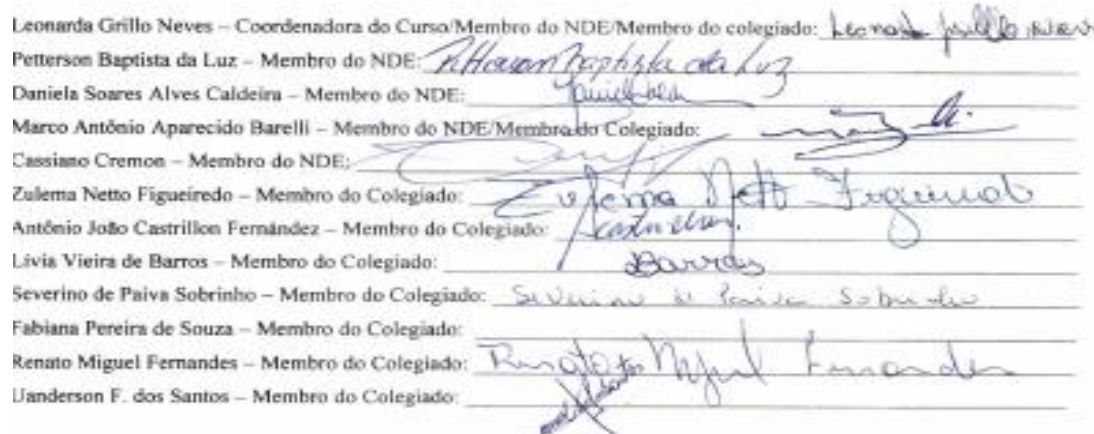 Leonarda Grillo Neves – Coordenadora do Curso/Membro do NDE/Membro do colegiado: Leonarda Grillo Neves
Petterson Baptista da Luz – Membro do NDE: Petterson Baptista da Luz
Daniela Soares Alves Caldeira – Membro do NDE:
Marco Antônio Aparecido Barelli – Membro do NDE/Membro do Colegiado:
Cassiano Cremon – Membro do NDE:
Zulema Netto Figueiredo – Membro do Colegiado: Zulema Netto Figueiredo
Antônio João Castrillon Fernández – Membro do Colegiado:
Lívia Vieira de Barros – Membro do Colegiado: Barros
Severino de Paiva Sobrinho – Membro do Colegiado: Severino de Paiva Sobrinho
Fabiana Pereira de Souza – Membro do Colegiado:
Renato Miguel Fernandes – Membro do Colegiado: Renato Miguel Fernandes
Uanderson F. dos Santos – Membro do Colegiado: